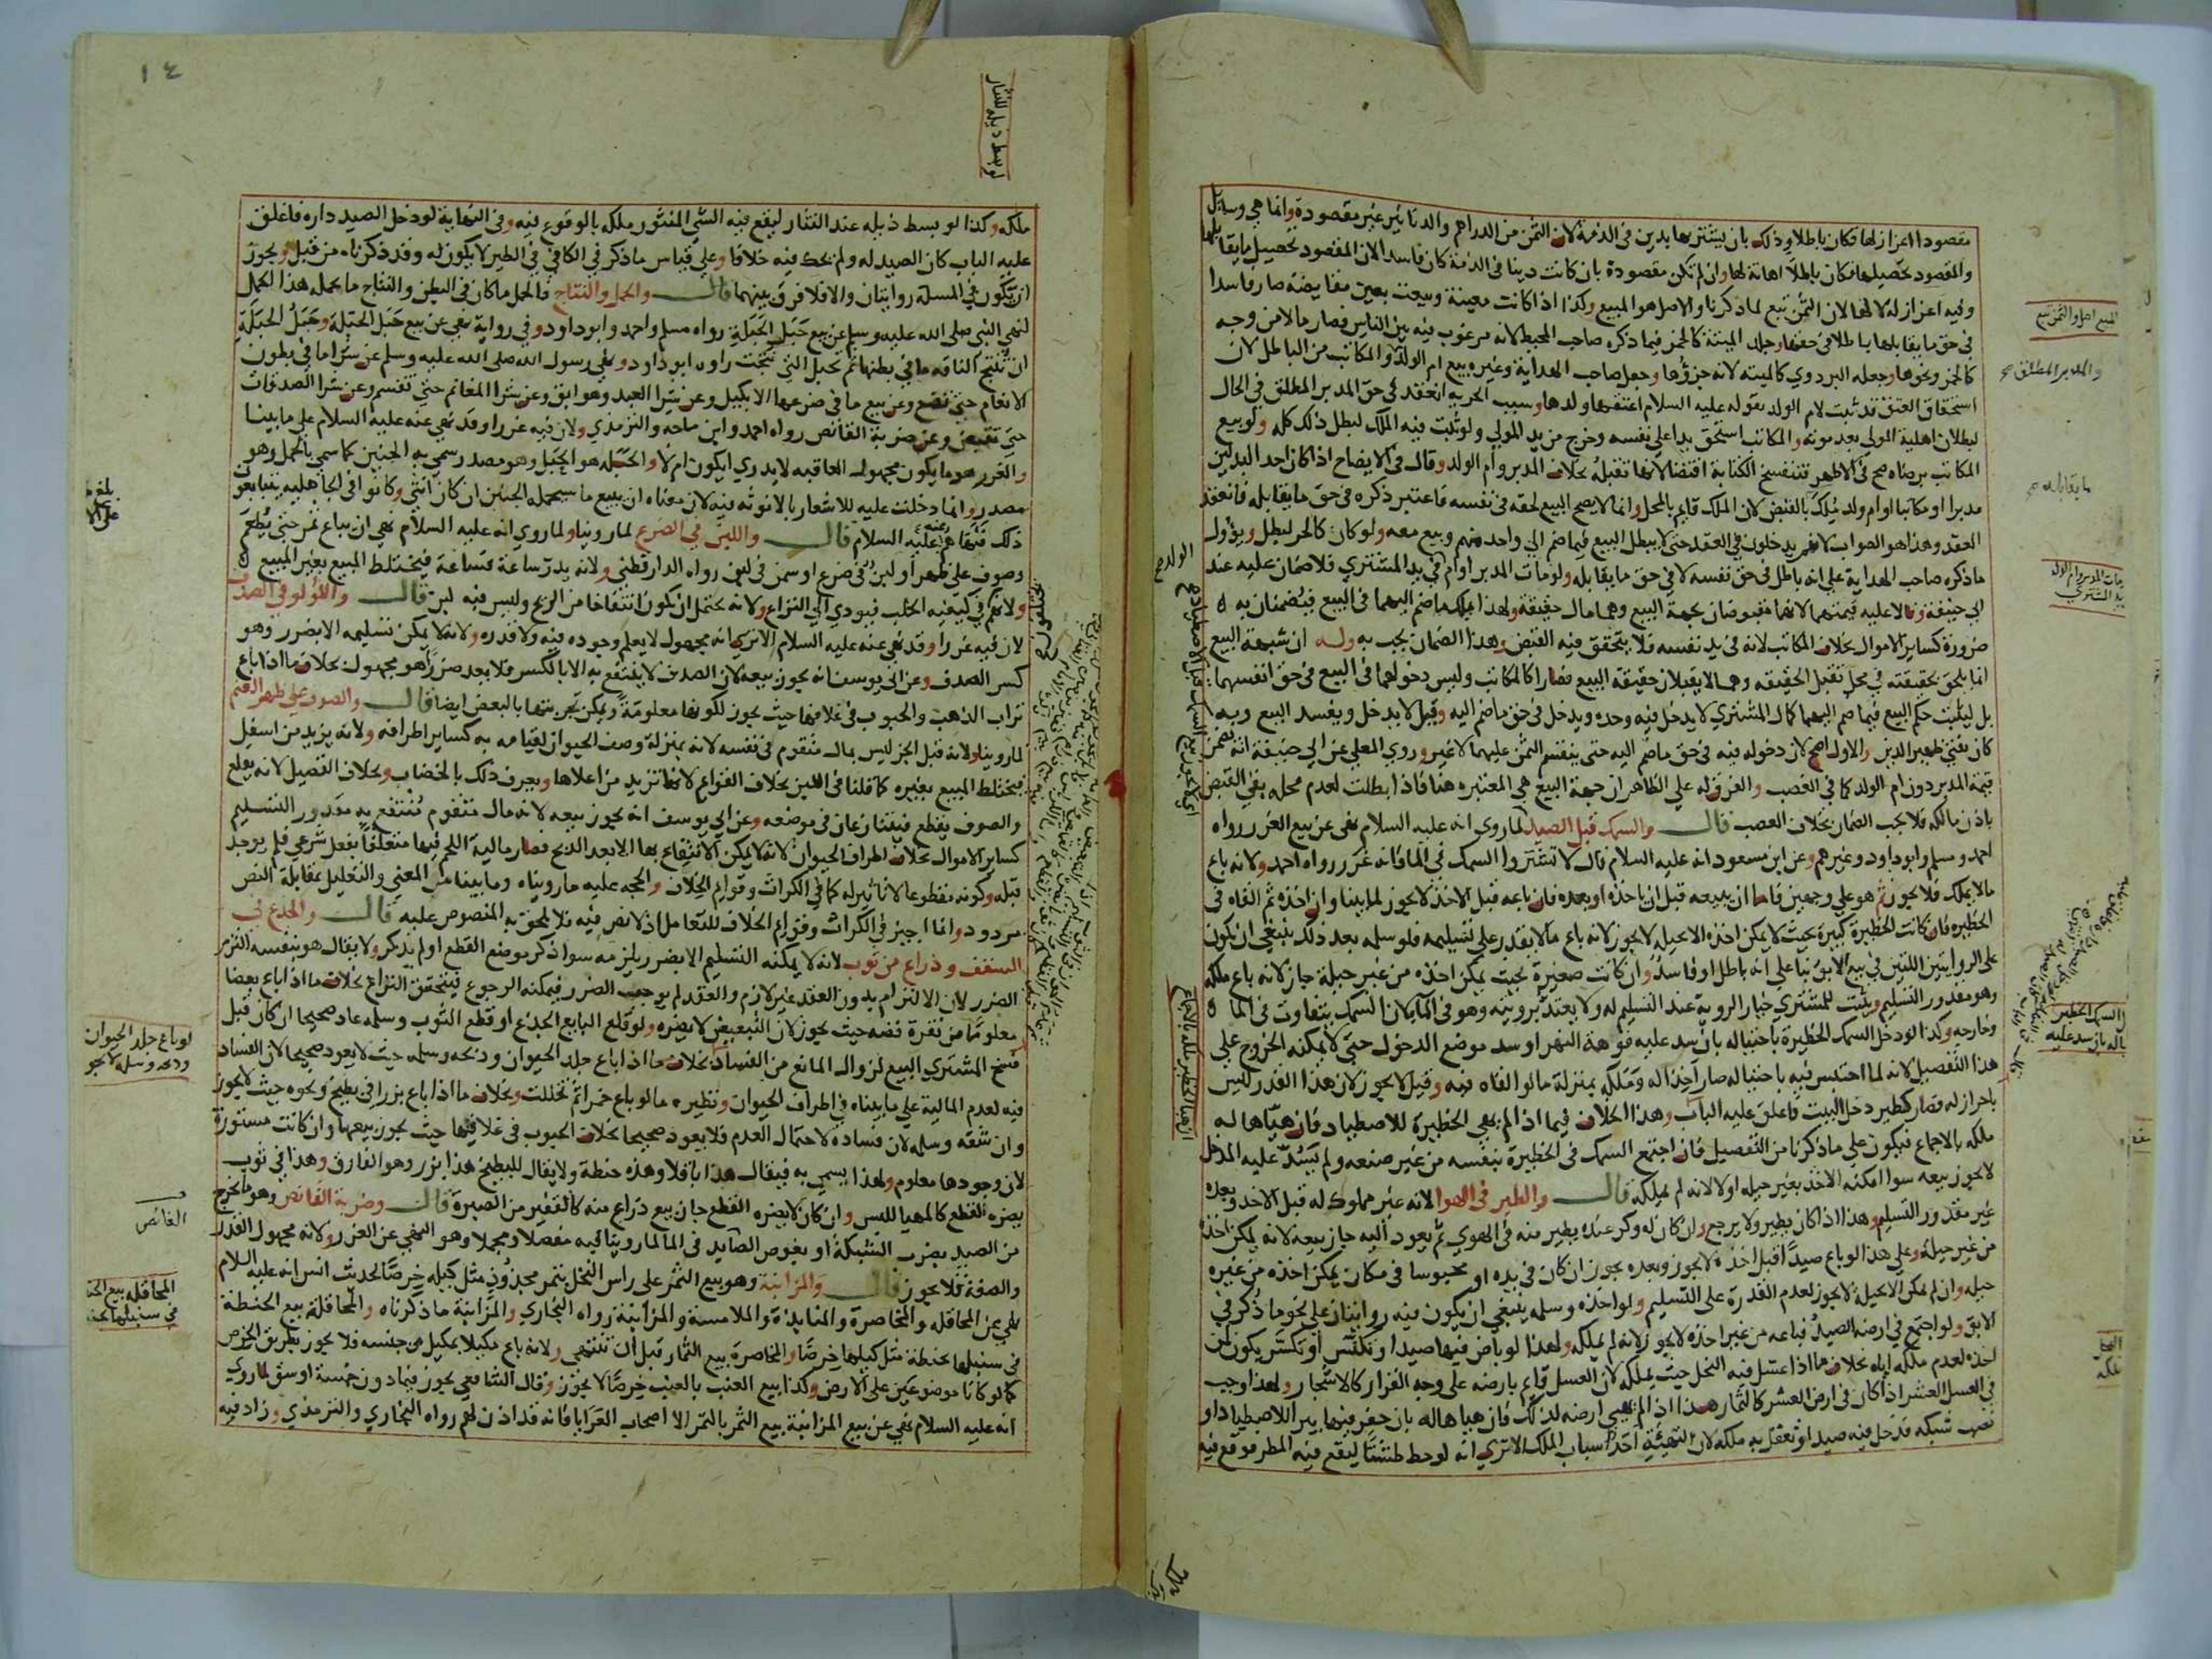 مقصودا اعزاز لها فكان باطلا وذلك بان يشتريها بدين فى الذمة لان الثمن من الدراهم والدنانير غير مقصودة وانما هي وسايل
والمقصود تحصيلها فكان باطلا اهانة لها وان لم تكن مقصودة بان كانت دينا فى الذمة كان فاسدا لان المقصود تحصيل ما يقابلها
وفيه اعزاز له لا لها لان الثمن تبع لما ذكرنا والاصل هو المبيع وكذا اذا كانت معينة وبيعت بعين مقايضة صار فاسدا
فى حق ما يقابلها باطلا فى حقها وجلد الميتة كالخمر فيما ذكره صاحب المحيط لانه مرغوب فيه بين الناس فصار مالا من وجه
كالخمر ونحوها وجعله البزدوي كالميته لانه جزؤها وجعل صاحب الهداية وغيره بيع ام الولد والمكاتب من الباطل لان
استحقاق العتق قد ثبت لام الولد بقوله عليه السلام اعتقها ولدها وسبب الحريه انعقد فى حق المدبر المطلق في الحال
لبطلان اهلية المولي بعد موته والمكاتب استحق يدا على نفسه وخرج من يد المولي ولو ثبت فيه الملك لبطل ذلك كله ولو بيع
المكاتب برضاه صح في الاظهر فتنفسخ الكتابة اقتضا لانها تقبله بخلاف المدبر وام الولد وقال فى الايضاح اذا كان احد البدلين
مدبرا او مكاتبا او ام ولد يملك بالقبض لان الملك قايم بالمحل وانما لا يصح البيع لحقه فى نفسه فاعتبر ذكره فى حق ما يقابله فانعقد
العقد وهذا هو الصواب لانهم يدخلون في العقد حتى لا يبطل البيع فيما ضم الي واحد منهم وبيع معه ولو كان كالحر لبطل ويؤول
ما ذكره صاحب الهداية على انه باطل فى حق نفسه لا في حق ما يقابله ولو مات المدبر او ام في يد المشتري فلا ضمان عليه عند
ابي حنيفة وقالا عليه قيمتهما لانها مقبوضان بجهة البيع وهما مال حقيقة ولهذا يملك ما ضم اليهما فى البيع فيضمنان به
ضرورة كساير الاموال بخلاف المكاتب لانه فى يد نفسه فلا يتحقق فيه القبض وهذا الضمان يجب به وله ان شبهة البيع
انما يلحق بحقيقته في محل تقبل الحقيقه وهما لا يقبلان حقيقة البيع فصارا كالمكاتب وليس دخولهما فى البيع فى حق انفسهما
بل ليثبت حكم البيع فيما ضم اليهما كمال المشتري لا يدخل فيه وحده ويدخل فى حق ما ضم اليه وقيل لا يدخل ويفسد البيع وبه
كان يفتي ظهير الدين والاول اصح لان دخوله فيه فى حق ما ضم اليه حتى ينقسم الثمن عليهما لا غير وروي المعلي عن ابي حنيفة انه يضمن
قيمة المدبر دون ام الولد كما في الغصب والفرق له علي الظاهر ان جهة البيع هي المعتبره هنا فاذا بطلت لعدم محله بقي القبض
باذن مالكه فلا يجب الضمان بخلاف الغصب قال والسمك قبل الصيد لما روي انه عليه السلام نهى عن بيع الغرر رواه
احمد ومسلم وابو داود وغيرهم وعن ابن مسعود انه عليه السلام قال لا تشتروا السمك في الما فانه غرر رواه احمد ولانه باع
مالا يملك فلا يجوز ثم هو علي وجهين فاما ان يبيعه قبل ان ياخذه او بعده فان باعه قبل الاخذ لا يجوز لما بينا وان اخذه ثم القاه فى
الحظيره فان كانت الحظيرة كبيرة بحيث لا يمكن اخذه الا بحيلة لا يجوز لانه باع ما لا يقدر على تسليمه فلو سلمه بعد ذلك ينبغي ان يكون
على الروايتين اللتين في بيع الابق بنا علي انه باطل او فاسد وان كانت صغيرة بحيث يمكن اخذه من غير حيلة جاز لانه باع ملكه
وهو مقدور التسليم ويثبت للمشتري خيار الروية عند التسليم له ولا يعتد برويته وهو فى الما لان السمك يتفاوت فى الما
وخارجه وكذا لو دخل السمك الحظيرة باحتياله بان سد عليه فوهة النهر او سد موضع الدخول حتى لا يمكنه الخروج علي
هذا التفصيل لانه لما احتبس فيه باحتياله صار آخذا له وملكه بمنزلة ما لو القاه فيه وقيل لا يجوز لان هذا القدر ليس
باحراز له فصار كطير دخل البيت فاغلق عليه الباب وهذا الخلاف فيما اذا لم يهيى الحظيرة للاصطياد فان هياها له
ملكه بالاجماع فيكون علي ما ذكرنا من التفصيل فان اجتمع السمك فى الحظيرة بنفسه من غير صنعه ولم يسد عليه المدخل
لا يجوز بيعه سوا امكنه الاخذ بغير حيله اولا لانه لم يملكه قال والطير فى الهوا لانه غير مملوك له قبل الاخذ وبعده
غير مقدور التسليم وهذا اذا كان يطير ولا يرجع وان كان له وكر عنده يطير منه فى الهوي ثم يعود اليه جاز بيعه لانه يمكن اخذه
من غير حيله وعلي هذا لو باع صيدا قبل اخذه لا يجوز وبعده يجوز ان كان فى يده او محبوسا فى مكان يمكن اخذه من غير
حيله وان لم يمكن الا بحيلة لا يجوز لعدم القدرة على التسليم ولو اخذه وسلمه ينبغي ان يكون فيه روايتان علي نحو ما ذكر في
الابق ولو اجتمع في ارضه الصيد فباعه من غير اخذه لا يجوز لانه لم يملكه ولهذا لو باض فيها صيد او تكنس او تكسر يكون لمن
اخذه لعدم ملكه اياه بخلاف ما اذا عسل فيه النحل حيث يملكه لان العسل قايم بارضه على وجه القرار كالاشجار ولهذا وجب
في العسل العشر اذا كان في ارض العشر كالثمار هذا اذا لم يهيى ارضه لذلك فان هياها له بان حفر فيها بير اللاصطياد او
نصب شبكه فدخل فيه صيد او تعقل به ملكه لان التهيئة احد اسباب الملك الا تري انه لو حط طشتا ليقع فيه المطر فوقع فيه
المبيع اصل والثمن تبع
والمدبر المطلق صح
ما يقابله صح
الولد صح
١٤
لو بسط ذيله للنثار
ملكه وكذا لو بسط ذيله عند النثار ليقع فيه الشي المنثور ملكه بالوقوع فيه وفى النهاية لو دخل الصيد داره فاغلق
عليه الباب كان الصيد له ولم يحك فيه خلافا وعلي قياس ما ذكر في الكافي في الطير لا يكون له وقد ذكرناه من قبل ويجوز
ان تكون في المسلة روايتان والا فلا فرق بينهما قال والحمل والنتاج فالحمل ما كان في البطن والنتاج ما يحمله هذا الحمل
لنهي النبي صلى الله عليه وسلم عن بيع حبل الحبلة رواه مسلم واحمد وابو داود وفي رواية نهي عن بيع حبل الحبلة وحبل الحبلة
ان تنتج الناقه ما في بطنها ثم تحبل التي نتجت رواه ابو داود ونهى رسول الله صلى الله عليه وسلم عن شرا ما فى بطون
الانعام حتي تضع وعن بيع ما فى ضرعها الا بكيل وعن شرا العبد وهو ابق وعن شرا المغانم حتي تقسم وعن شرا الصدقات
حتي تقبض وعن ضربة القانص رواه احمد وابن ماجه والترمذي ولان فيه غررا وقد نهي عنه عليه السلام على ما بينا
والغرر هو ما يكون مجهول العاقبه لا يدري ايكون ام لا والحبل هو الحبل وهو مصدر سمي به الجنين كما سمي بالحمل وهو
مصدر وانما دخلت عليه للاشعار بالانوثه فيه لان معناه ان يبيع ما سيحمله الجنين ان كان انثي وكانوا فى الجاهلية يتبايعون
ذلك فنهاهم عنه عليه السلام قال واللبن في الضرع لما روينا ولما روي انه عليه السلام نهي ان يباع ثمر حتى يطعم
وصوف على ظهر او لبن في ضرع او سمن فى لبن رواه الدارقطني ولانه يدر ساعة فساعة فيختلط المبيع بغير المبيع
ولانهم في كيفية الحلب فيودي الي النزاع ولانه يحتمل ان يكون انتفاخا من الريح وليس فيه لبن قال واللؤلؤ في الصدف
لان فيه غررا وقد نهي عنه عليه السلام الا تري انه مجهول لا يعلم وجوده فيه ولا قدره ولانه لا يمكن تسليمه الا بضرر وهو
كسر الصدف وعن ابي يوسف انه يجوز بيعه لان الصدف لا ينتفع به الا بالكسر فلا يعد ضررا هو مجهول بخلاف ما اذا باع
تراب الذهب والحبوب فى غلافها حيث يجوز لكونها معلومة ويمكن تجربتها بالبعض ايضا قال والصوف على ظهر الغنم
لما روينا ولانه قبل الجز ليس بمال متقوم فى نفسه لانه بمنزلة وصف الحيوان لقيامه به كساير اطرافه ولانه يزيد من اسفل
فيختلط المبيع بغيره كما قلنا فى اللبن بخلاف القوايم لانها تزيد من اعلاها ويعرف ذلك بالخضاب وبخلاف الفصيل لانه يقلع
والصوف يقطع فيتنازعان في موضعه وعن ابي يوسف انه يجوز بيعه لانه مال متقوم منتفع به مقدور التسليم
كساير الاموال بخلاف اطراف الحيوان لانه لا يمكن الانتفاع بها الا بعد الذبح فصار مالية اللحم فيها متعلقا بفعل شرعي فلم يوجد
قبله وكونه مقطوعا لا تاثير له كما في الكراث وقوايم الخلاف والحجه عليه ما رويناه وما بينا من المعني والتعليل بمقابلة النص
مردود وانما اجيز في الكراث وقوايم الخلاف للتعامل اذ لا نص فيه فلا يلحق به المنصوص عليه قال والجذع في
السقف وذراع من ثوب لانه لا يمكنه التسليم الا بضرر يلزمه سوا ذكر موضع القطع او لم يذكر ولا يقال هو بنفسه التزم
الضرر لان الالتزام بدون العقد غير لازم والعقد لم يوجب الضرر فيمكنه الرجوع فيتحقق النزاع بخلاف ما اذا باع بعضا
معلوما من نقرة فضه حيث يجوز لان التبعيض لا يضره ولو قلع البايع الجذع او قطع الثوب وسلمه عاد صحيحا ان كان قبل
فسخ المشتري البيع لزوال المانع من الفساد بخلاف ما اذا باع جلد الحيوان وذبحه وسلمه حيث لا يعود صحيحا لان الفساد
فيه لعدم المالية علي ما بيناه في اطراف الحيوان ونظيره ما لو باع خمرا ثم تخللت وبخلاف ما اذا باع بزرا في بطيخ ونحوه حيث لا يجوز
وان شقه وسلمه لان فساده لاحتمال العدم فلا يعود صحيحا بخلاف الحبوب فى غلافيها حيث يجوز بيعها وان كانت مستورة
لان وجودها معلوم ولهذا يسمي به فيقال هذا باقلا وهذه حنطة ولا يقال للبطيخ هذا بزر وهو الفارق وهذا في ثوب
يضره القطع كالمهيا للبس وان كان لا يضره القطع جاز بيع ذراع منه كالقفيز من الصبرة قال وضربة القانص وهو ما يخرج
من الصيد بضرب الشبكة او بغوص الصايد فى الما لما روينا فيه مفصلا ومجملا وهو النهي عن الغرر ولانه مجهول القدر
والصفة فلا يجوز قال والمزابنة وهو بيع الثمر على راس النخل بتمر مجذوذ مثل كيله خرصا لحديث انس انه عليه السلام
نهي عن المحاقله والمخاضرة والمنابذة والملامسة والمزابنة رواه البخاري والمزابنة ما ذكرناه والمحاقلة بيع الحنطة
في سنبلها بحنطة مثل كيلها خرصا والمخاضرة بيع الثمار قبل ان تنتهي ولانه باع مكيلا بمكيل من جنسه فلا يجوز بطريق الخرص
كما لو كانا موضوعين على الارض وكذا بيع العنب بالعنب خرصا لا يجوز وقال الشافعي يجوز فيما دون خمسة اوسق لما روي
انه عليه السلام نهي عن بيع المزابنة بيع الثمر بالتمر الا اصحاب العرايا فانه قد اذن لهم رواه البخاري والترمذي وزاد فيه
لو باع جلد الحيوان
وذبحه وسلمه لا يجو
الغائص
المحاقله بيع الحنا
في سنبلها بحنه